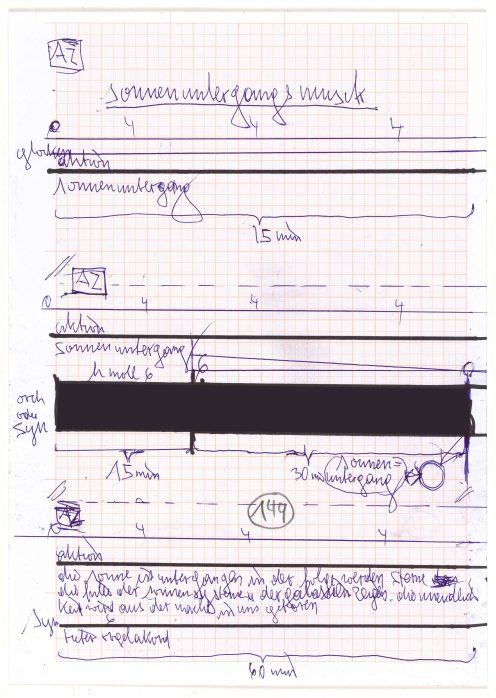 AZ
sonnenuntergangsmusik
0 4 4 4
glocken
aktion
sonnenuntergang
15 min
AZ
0 4 4 4
aktion
sonnenuntergang
h moll 6 6
orch
oder
syn
15 min
30 min
sonnen=
untergang
149
AZ
0 4 4 4
aktion
die sonne ist untergangen in der folge werden sterne
die fülle der sonnensysteme der galaxien zeigen. die unendlich
keit wird aus der nacht in uns geboren
syn
orgelakord
60 min